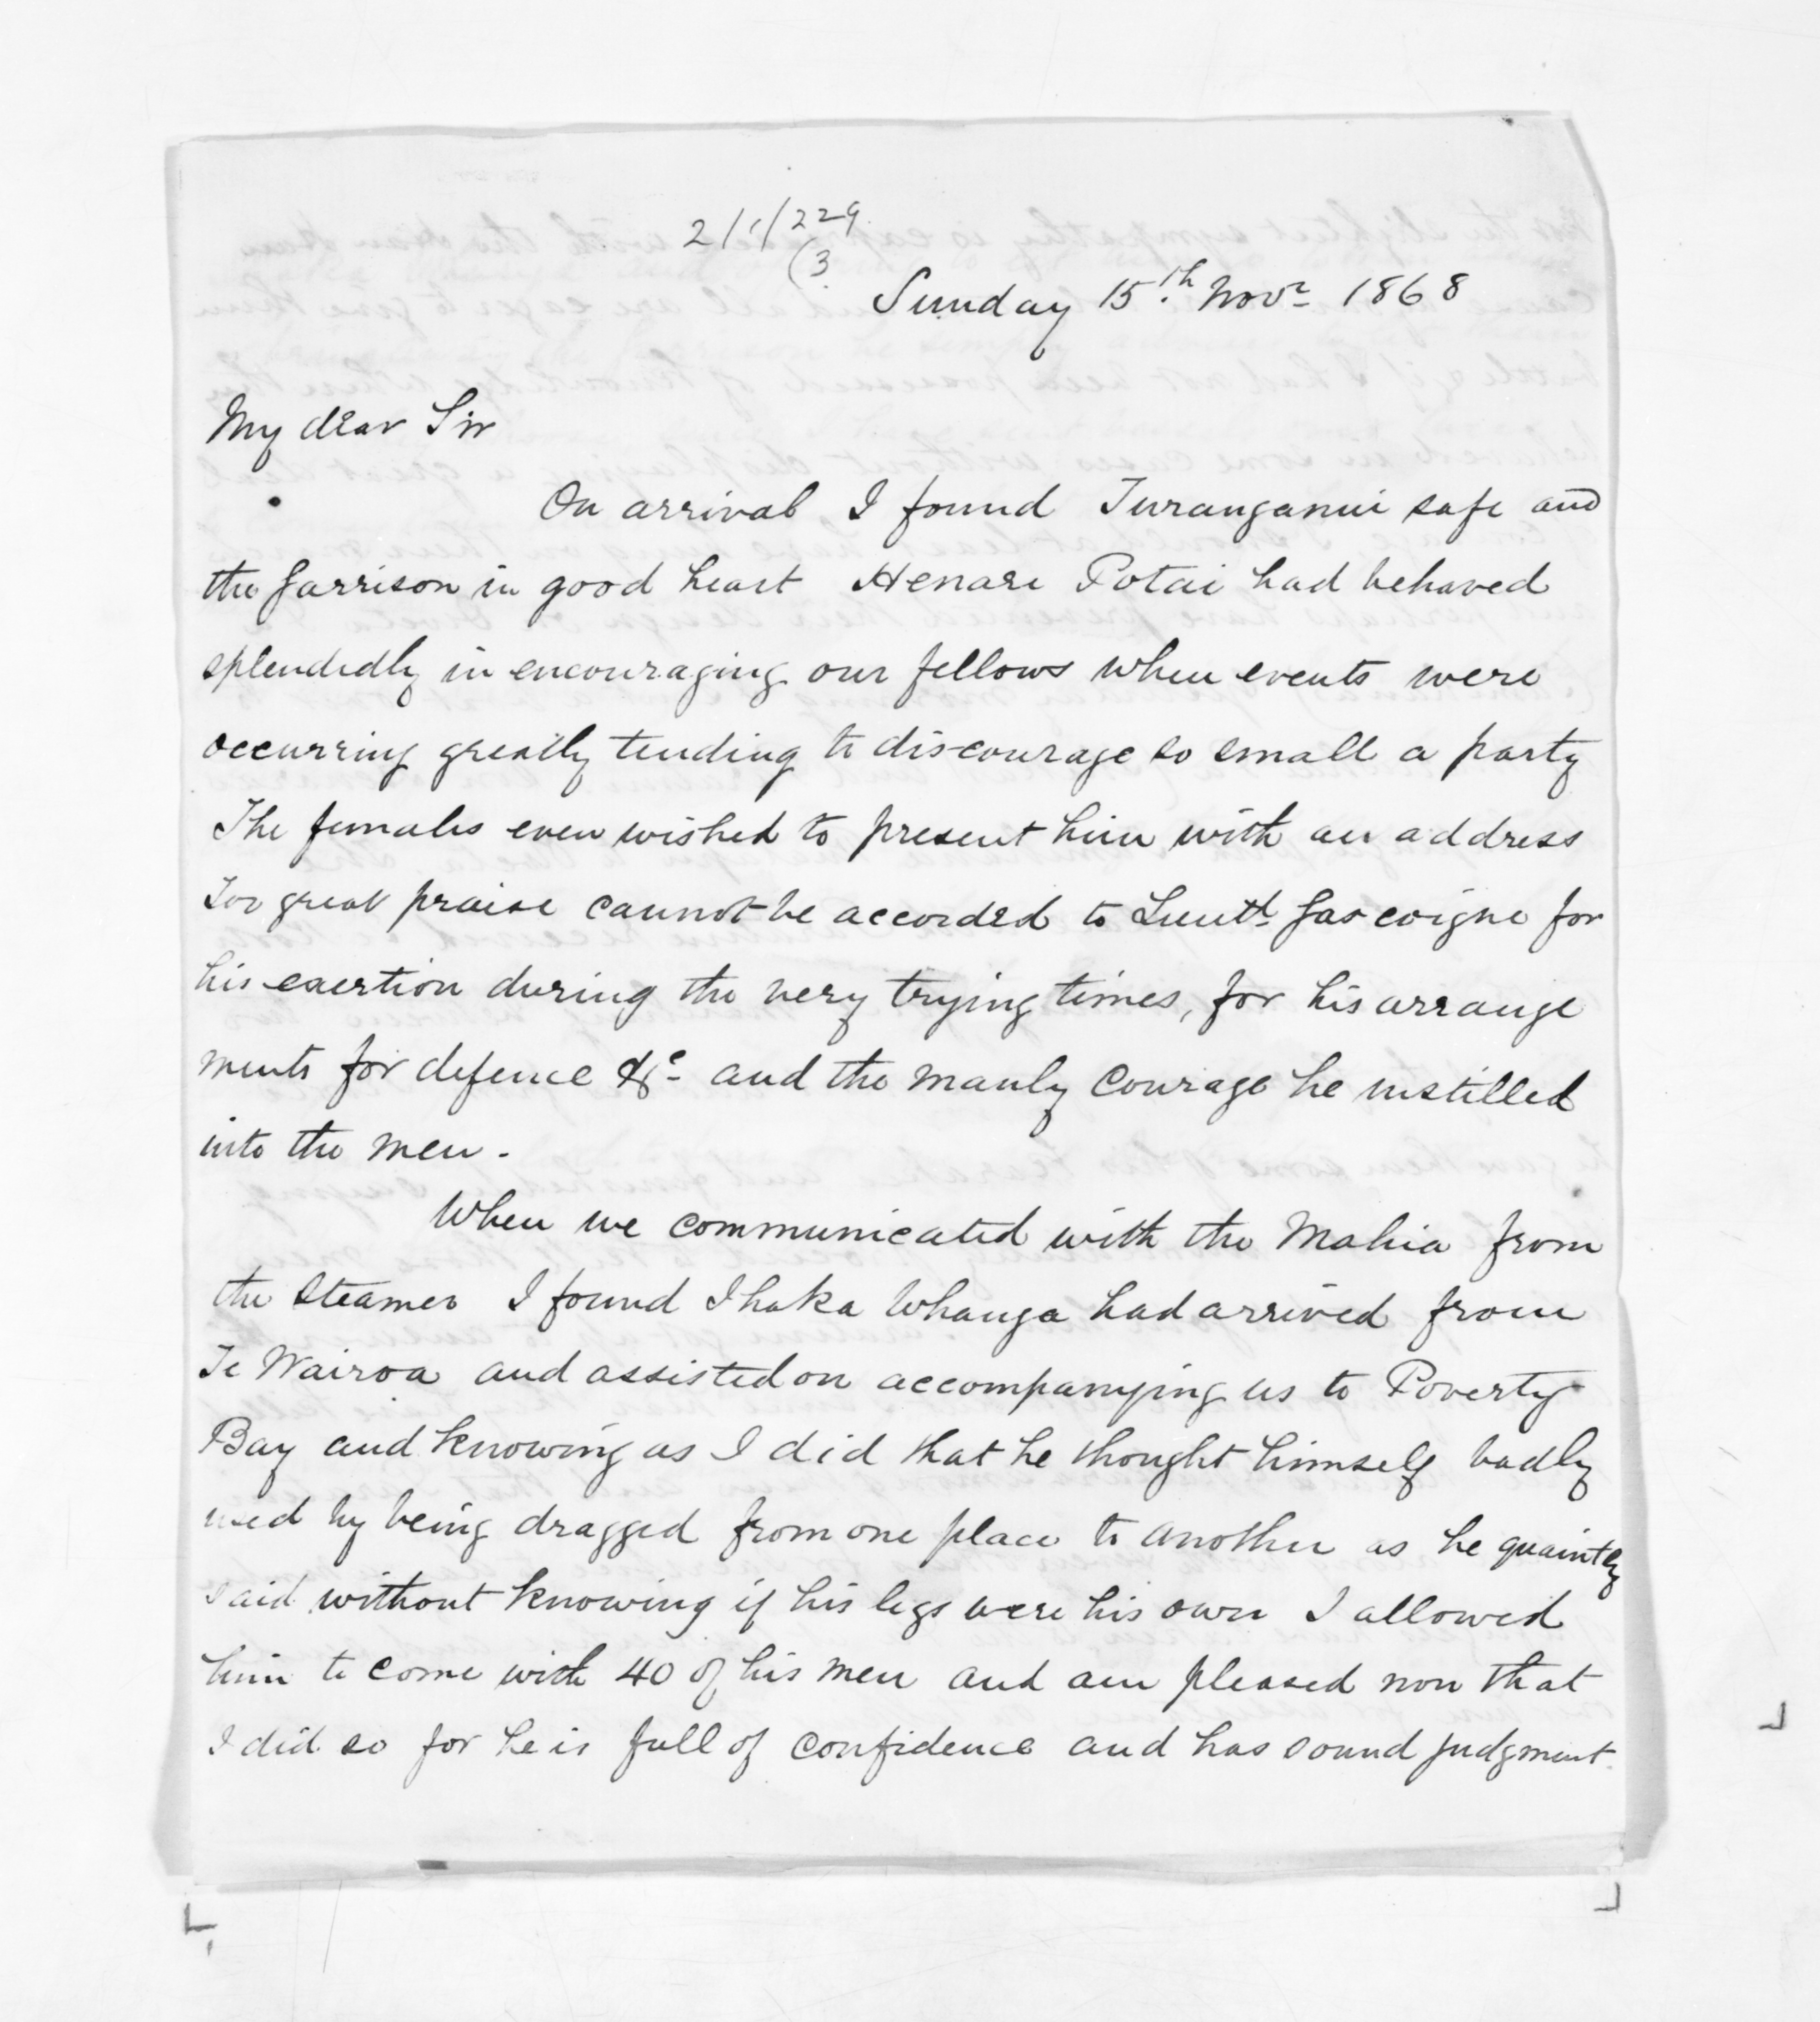 2/1/229
(3
Sunday 15th Novr 1868
My dear Sir
On arrival I found Turanganui safe and
the Garrison in good heart Henare Potai had behaved
splendidly in encouraging our fellows when events were
occurring greatly tending to discourage so small a party
The females even wished to present him with an address
Too great praise cannot be accorded to Lieutt Gascoigne for
his exertion during the very trying times, for his arrange
ments for defence &c and the manly courage he instilled
into the men.
When we communicated with the Mahia from
the Steamer I found Ihaka Whanga had arrived from
Te Wairoa and assisted on accompanying us to Poverty
Bay and knowing as I did that he thought himself badly
used by being dragged from one place to another as he quaintly
said without knowing if his legs were his own I allowed
him to come with 40 of his men and am pleased now that
I did so for he is full of confidence and has sound judgment.